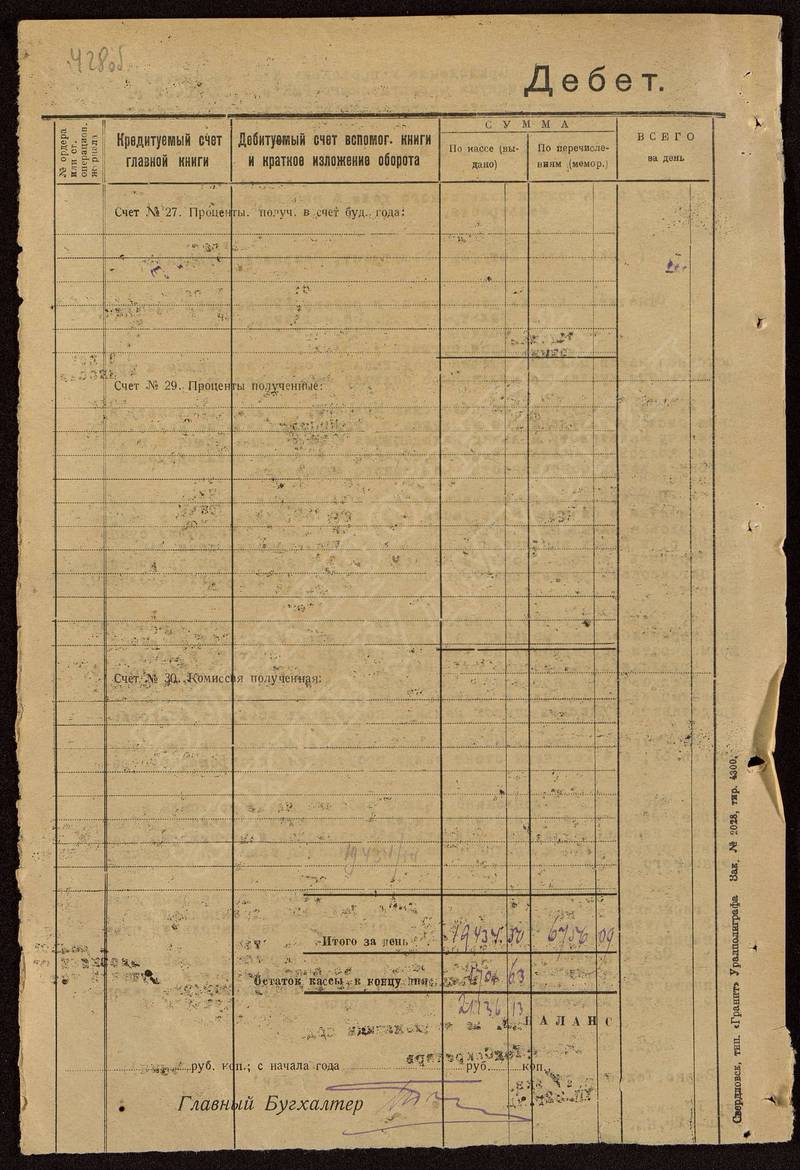 428об
Дебет.
№ ордера или ст. операцион. журнала
Кредитуемый счет главной книги
Дебитуемый счет вспомог. книги и краткое изложение оборота
СУММА
По кассе (выдано)
По перечислениям (мемор.)
ВСЕГО за день
Счет № 27. Проценты. получ. в счет буд. года:
Счет № 29. Проценты полученные:
Счет № 30. Комиссия полученная:
Итого за день 19434 50 6756 09
Остаток кассы к концу дня 63
21136 13
БАЛАНС
руб. коп.; с начала года руб. коп.
Главный Бухгалтер
Свердловск, тип. «Гранит» Уралполиграфа Зак. № 2028, тир. 4300.